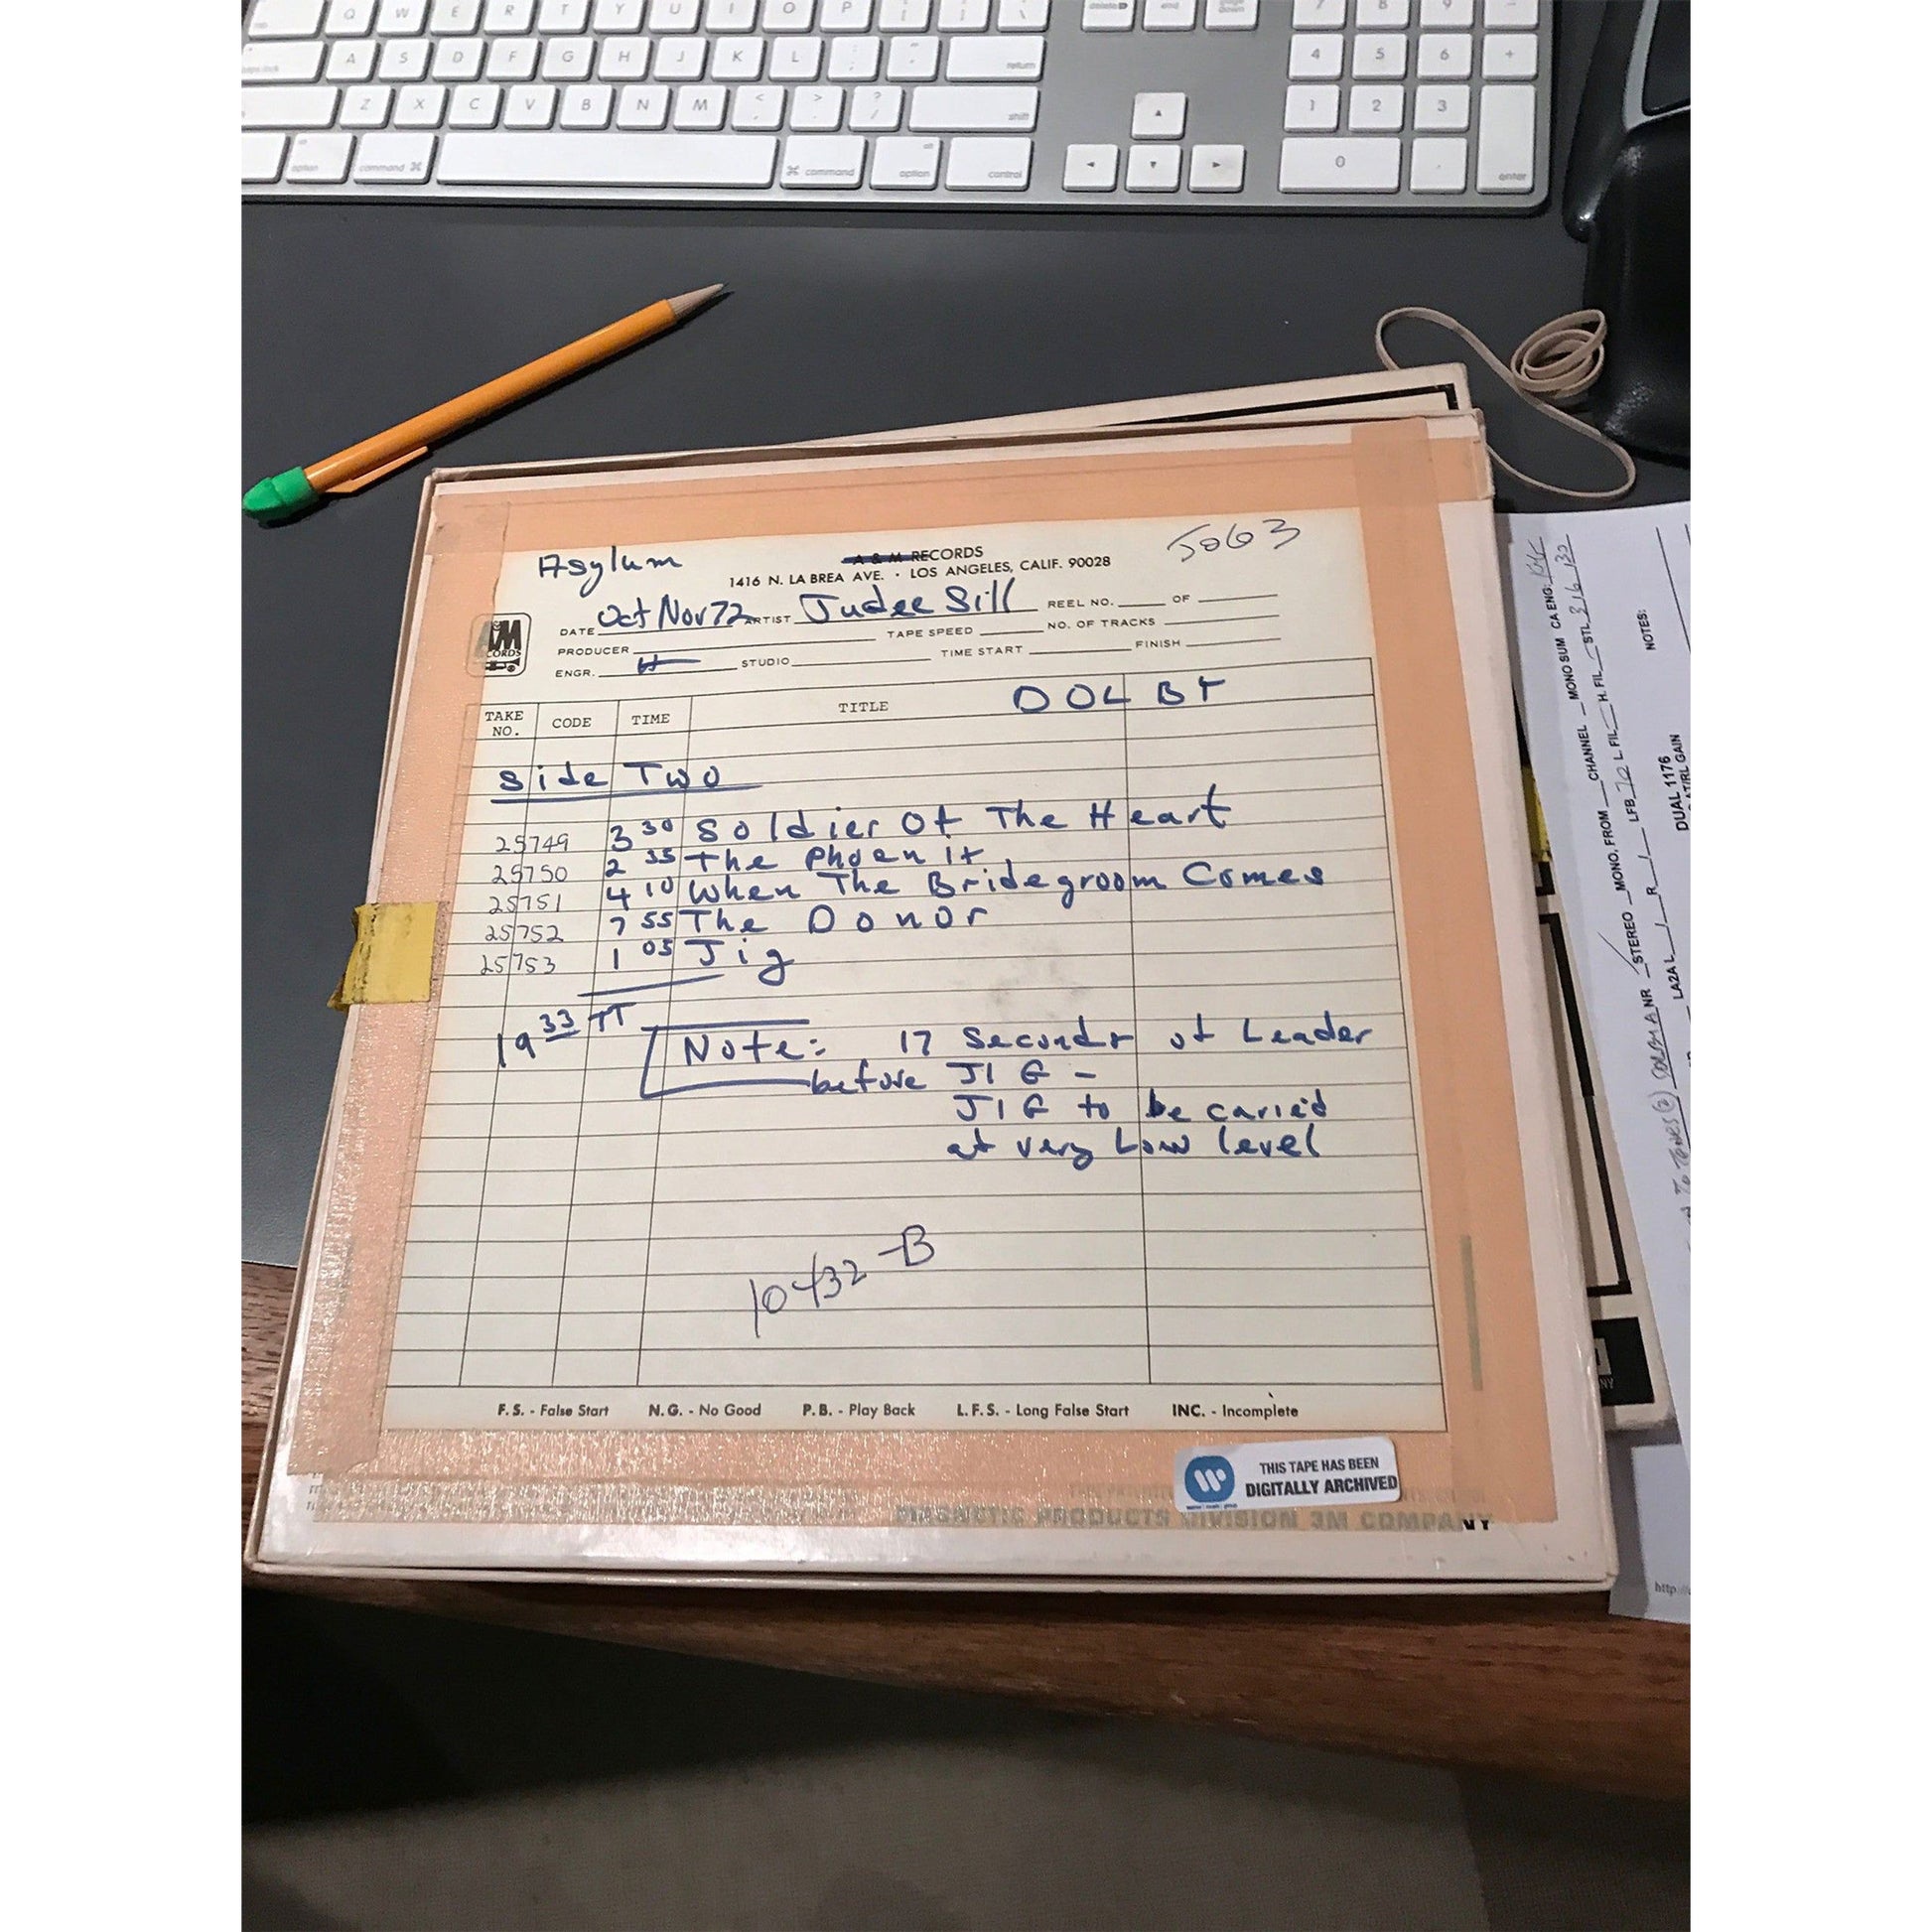 Q W E R T Y U I O P
delete end page down 7 8 9 -
A S D F G H J K L return 4 5 6 +
Z X C V B N M < > ? / shift 1 2 3
option command ⌘ ⌘ command option control 0 . enter
Asylum
A & M RECORDS
5063
1416 N. LA BREA AVE. · LOS ANGELES, CALIF. 90028
DATE Oct Nov 72 ARTIST Judee Sill REEL NO. OF
PRODUCER TAPE SPEED NO. OF TRACKS
ENGR. H STUDIO TIME START FINISH
TAKE NO. CODE TIME TITLE DOLBY
Side Two
25749 3 30 Soldier Of The Heart
25750 2 35 The Phoenix
25751 4 10 When The Bridegroom Comes
25752 7 55 The Donor
25753 1 05 Jig
19 33 TT
Note: 17 Seconds of Leader
before JIG -
JIG to be caried
at very Low level
10432-B
F.S. - False Start N.G. - No Good P.B. - Play Back L.F.S. - Long False Start INC. - Incomplete
THIS TAPE HAS BEEN
DIGITALLY ARCHIVED
MAGNETIC PRODUCTS DIVISION 3M COMPANY
STEREO MONO, FROM CHANNEL MONO SUM CA ENG:
NOTES:
DUAL 1176
http: